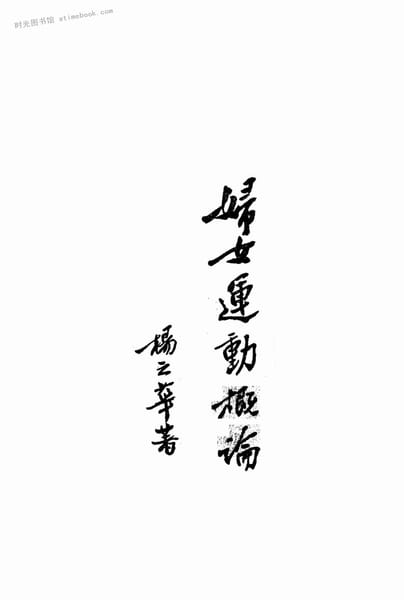 时光图书馆 etimebook.com
婦女運動概論
楊之華著